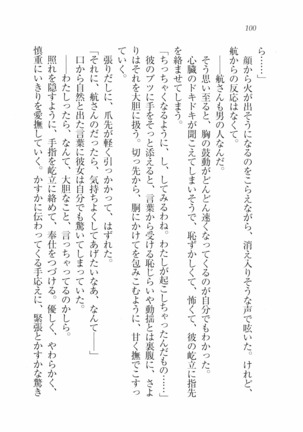 100
ら……」
　顔から火が出そうになるのをこらえながら、消え入りそうな声で呟いた。けれど、
航からの反応はなくて。
　――航さんも男の人なんだ。
　そう思い至ると、胸の鼓動がどんどん速くなってくるのが自分でもわかった。
　心臓のドキドキが聞こえてしまいそうで、恥ずかしくて、怖くて、彼の屹立に指先
を絡ませてしまう。
「ちっちゃくなるように、し、してみるわね。わたしが起こしちゃったんだもの……」
　彼のブツに手をそっと添えると、言葉から受ける恥じらいや動揺とは裏腹に、さよ
りはそれを大胆に扱う。切っ先から、胴にかけてを包みこむように、甘く撫でこすっ
ていく。
　張りだしに、爪先が軽く引っかかって、はずれた。
「それに、航さんのだったら、気持ちよくしてあげたいなあ、なんて――」
　口から自然と出た言葉に彼女は自分でも驚いてしまっていた。
　――わたしったら、なんて、大胆なこと、言っちゃってるのかしら。
　照れを隠すように、手指を屹立に絡めて、奉仕をつづける。優しく、やわらかく、
慎重にいきりを愛撫していく。かすかに伝わってくる手応えに、緊張とかすかな驚き